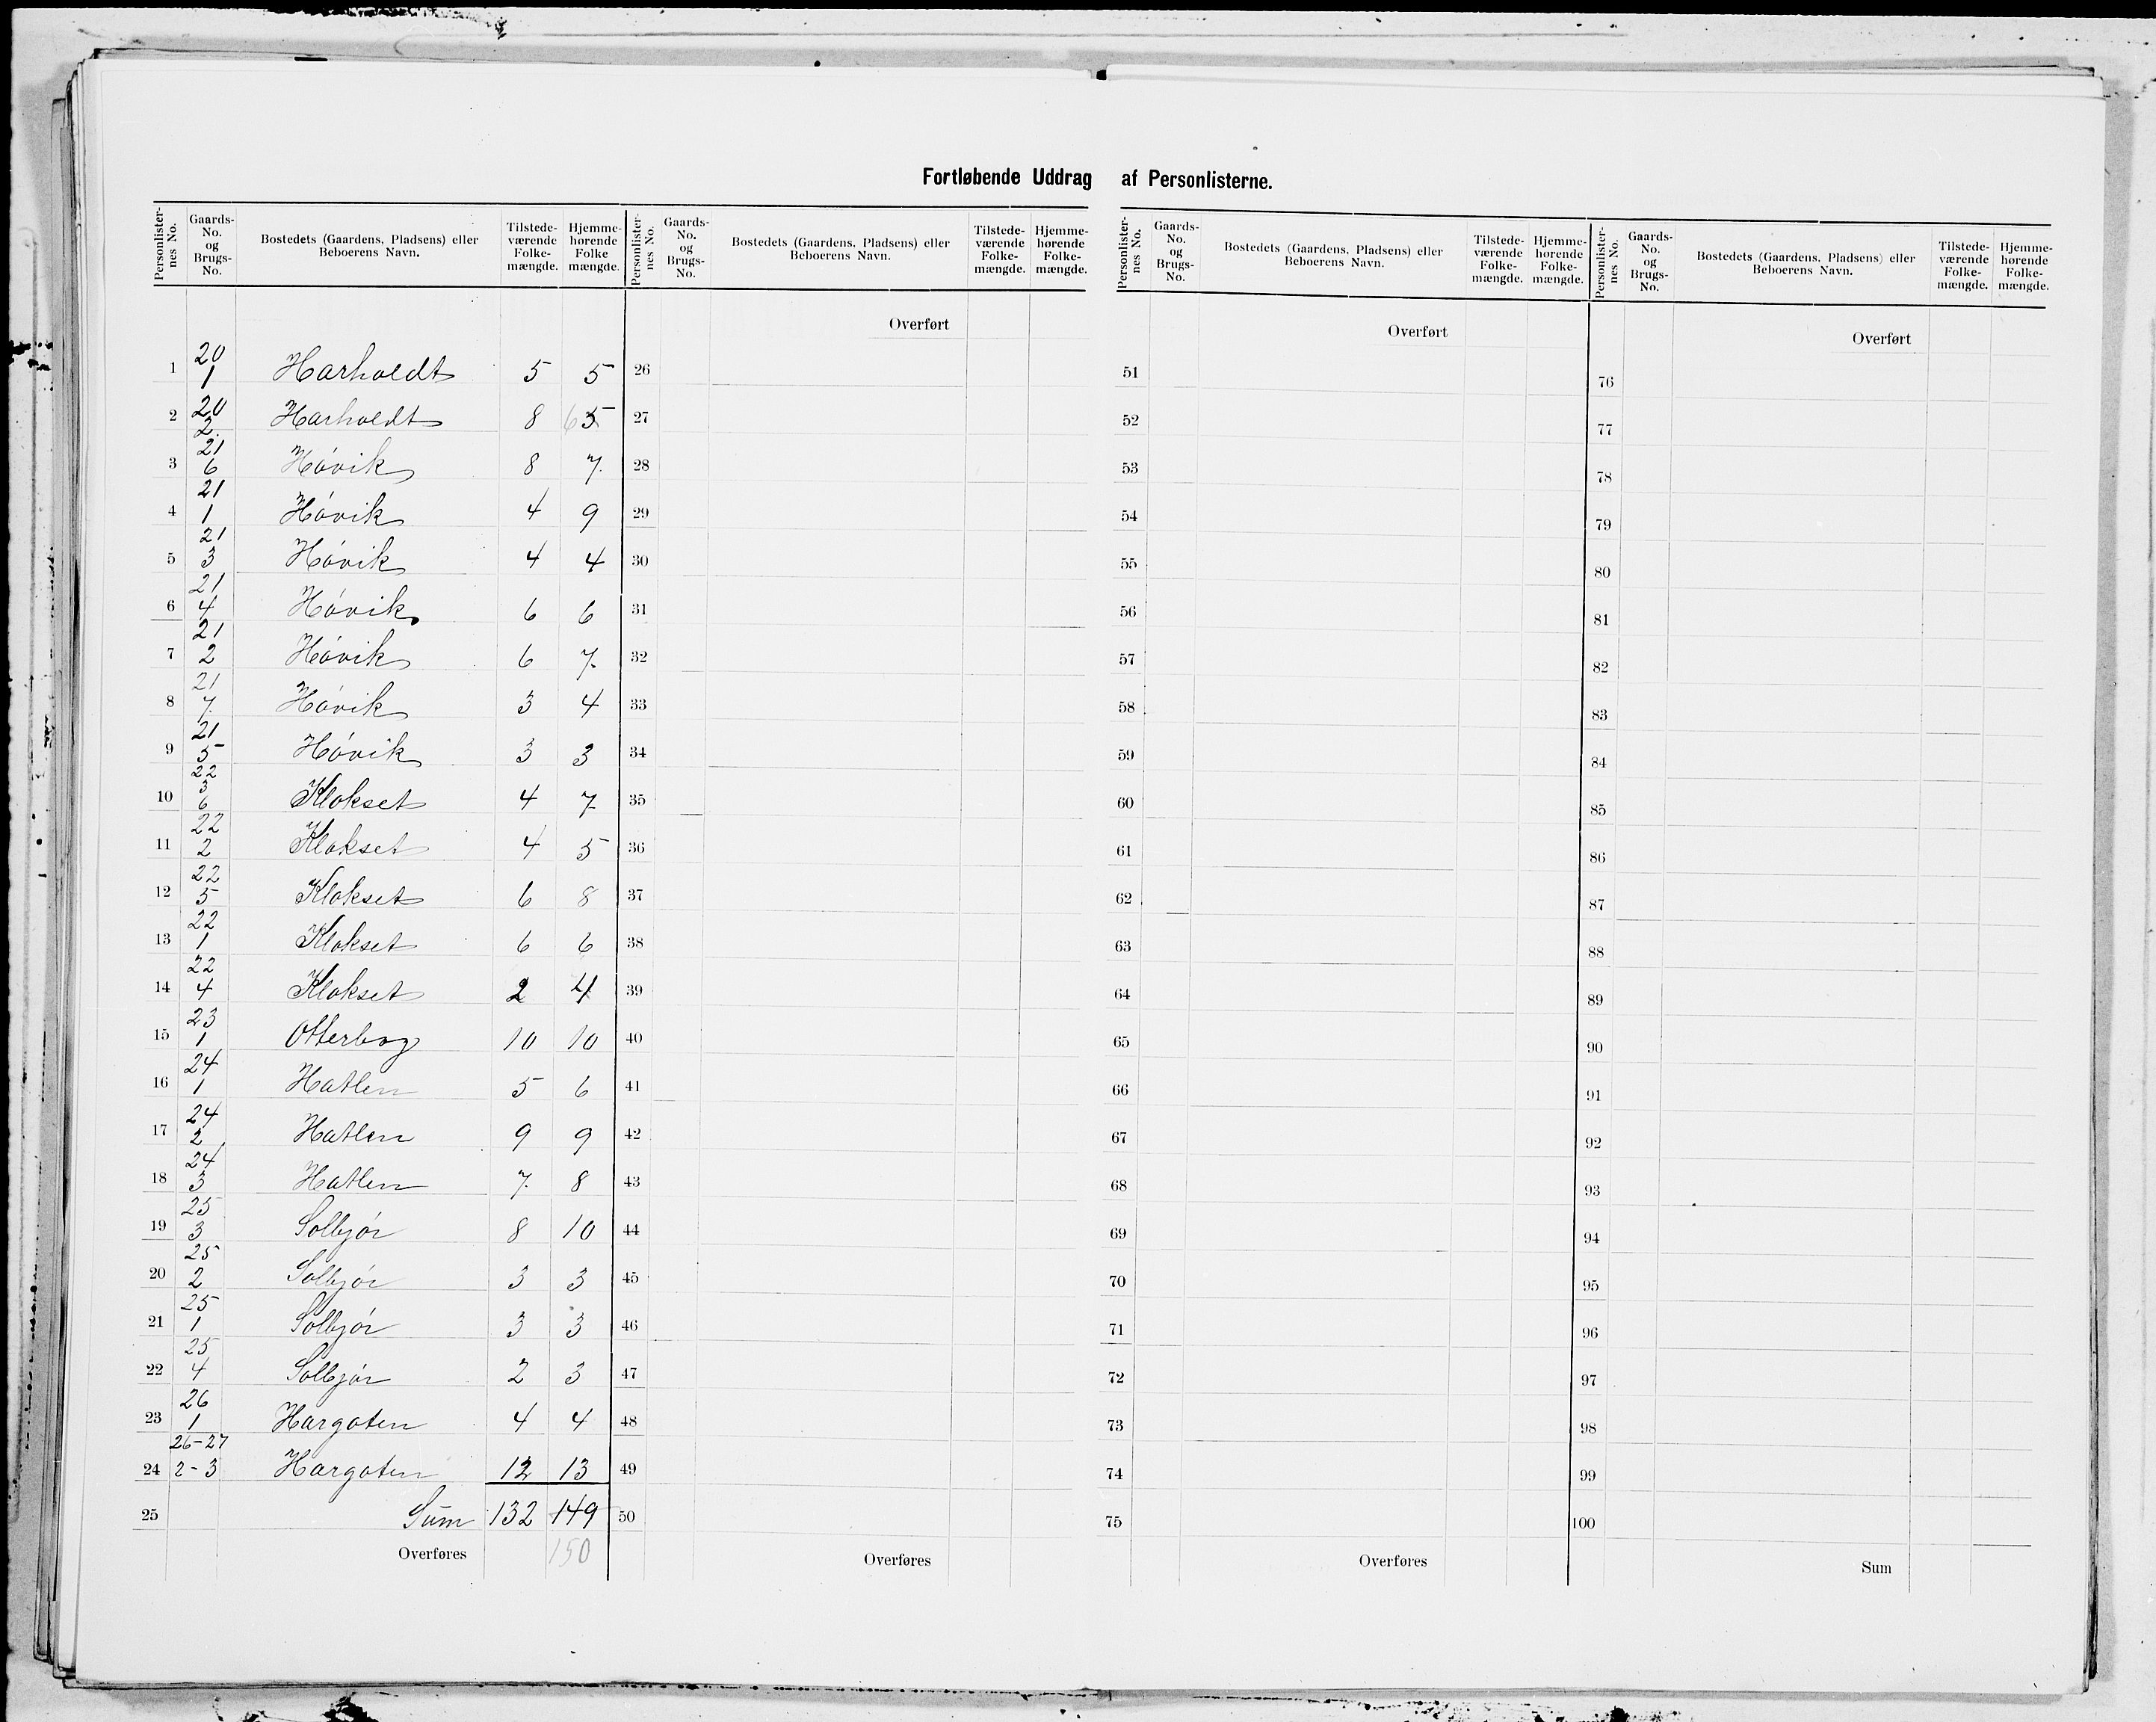 Fortløbende Uddrag af Personlisterne.
Personlister-nes No. | Gaards-No. og Brugs-No. | Bostedets (Gaardens, Pladsens) eller Beboerens Navn. | Tilstede-værende Folke-mængde. | Hjemme-hørende Folke mængde.
1 20 1 Harholdt 5 5
2 20 2. Harholdt 8 6 5
3 21 6 Hóvik 8 7.
4 21 1 Hóvik 4 9
5 21 3 Hóvik 4 4
6 21 4 Hóvik 6 6
7 21 2 Hóvik 6 7.
8 21 7. Hóvik 3 4
9 21 5 Hóvik 3 3
10 22 3 6 Klokset 4 7.
11 22 2 Klokset 4 5
12 22 5 Klokset 6 8
13 22 1 Klokset 6 6
14 22 4 Klokset 2 4
15 23 1 Otterbog 10 10
16 24 1 Hatlen 5 6
17 24 2 Hatlen 9 9
18 24 3 Hatlen 7. 8
19 25 3 Solbjór 8 10
20 25 2 Solbjór 3 3
21 25 1 Solbjór 3 3
22 25 4 Solbjór 2 3
23 26 1 Hargoten 4 4
24 26-27 2-3 Hargoten 12 13
25 Sum 132 149
Overføres 150
Personlister-nes No. | Gaards-No. og Brugs-No. | Bostedets (Gaardens, Pladsens) eller Beboerens Navn. | Tilstede-værende Folke-mængde. | Hjemme-hørende Folke-mængde.
Overført
26
27
28
29
30
31
32
33
34
35
36
37
38
39
40
41
42
43
44
45
46
47
48
49
50
Overføres
Personlister-nes No. | Gaards-No. og Brugs-No. | Bostedets (Gaardens, Pladsens) eller Beboerens Navn. | Tilstede-værende Folke-mængde. | Hjemme-hørende Folke-mængde.
Overført
51
52
53
54
55
56
57
58
59
60
61
62
63
64
65
66
67
68
69
70
71
72
73
74
75
Overføres
Personlister-nes No. | Gaards-No. og Brugs-No. | Bostedets (Gaardens, Pladsens) eller Beboerens Navn. | Tilstede-værende Folke-mængde. | Hjemme-hørende Folke-mængde.
Overført
76
77
78
79
80
81
82
83
84
85
86
87
88
89
90
91
92
93
94
95
96
97
98
99
100
Sum